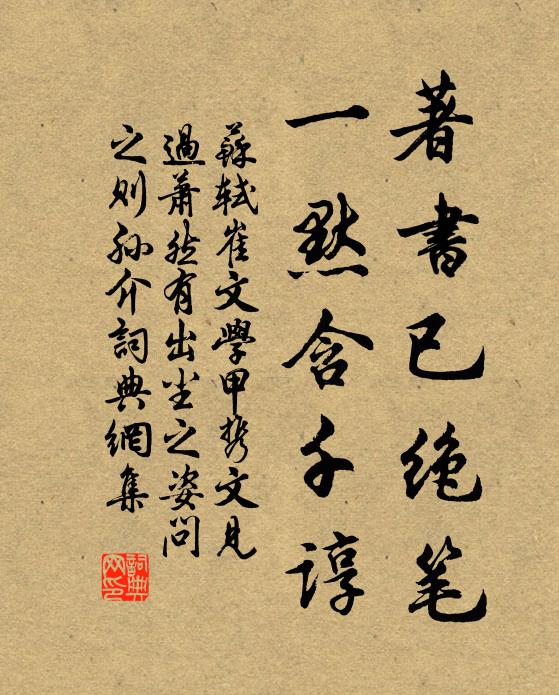 著書已绝笔
一默含千諄
蘇軾崔文學甲携文見
過蕭然有出尘之姿問
之则孙介詞典網集
詞典网印